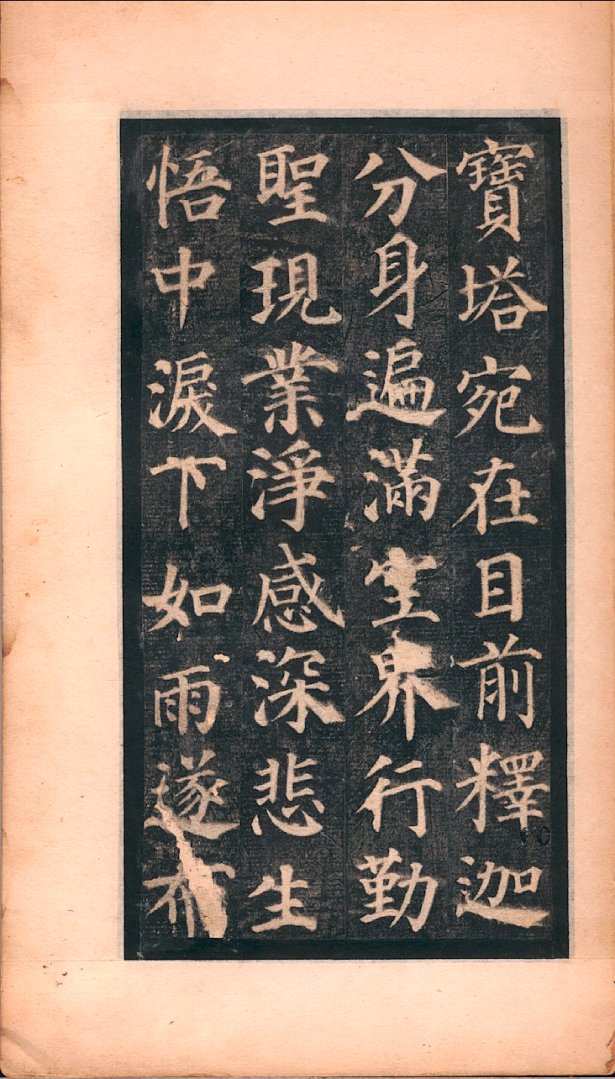 寶塔宛在目前釋迦
分身遍滿空界行勤
聖現業淨感深悲生
悟中淚下如雨遂布